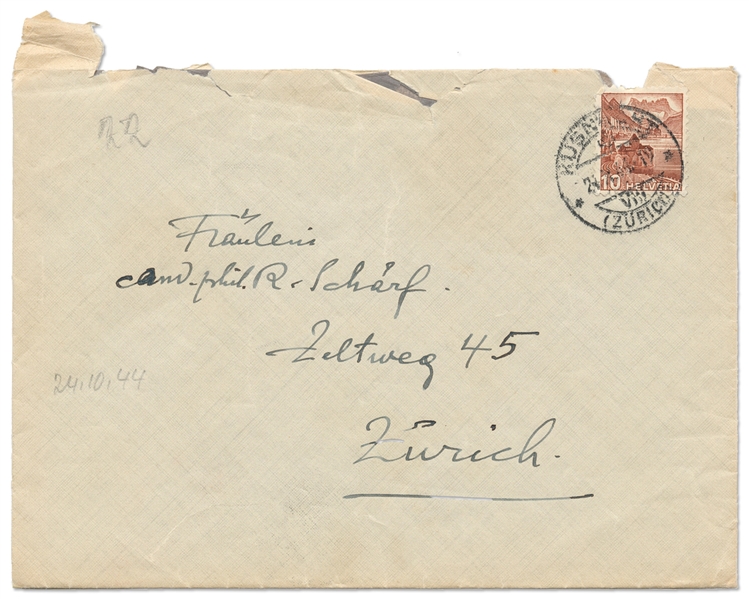 22
KÜSNACHT
(ZÜRICH)
VIII
10 HELVETIA
Fräulein
cand. phil. R. Schärf.
Zeltweg 45
24.10.44
Zürich.